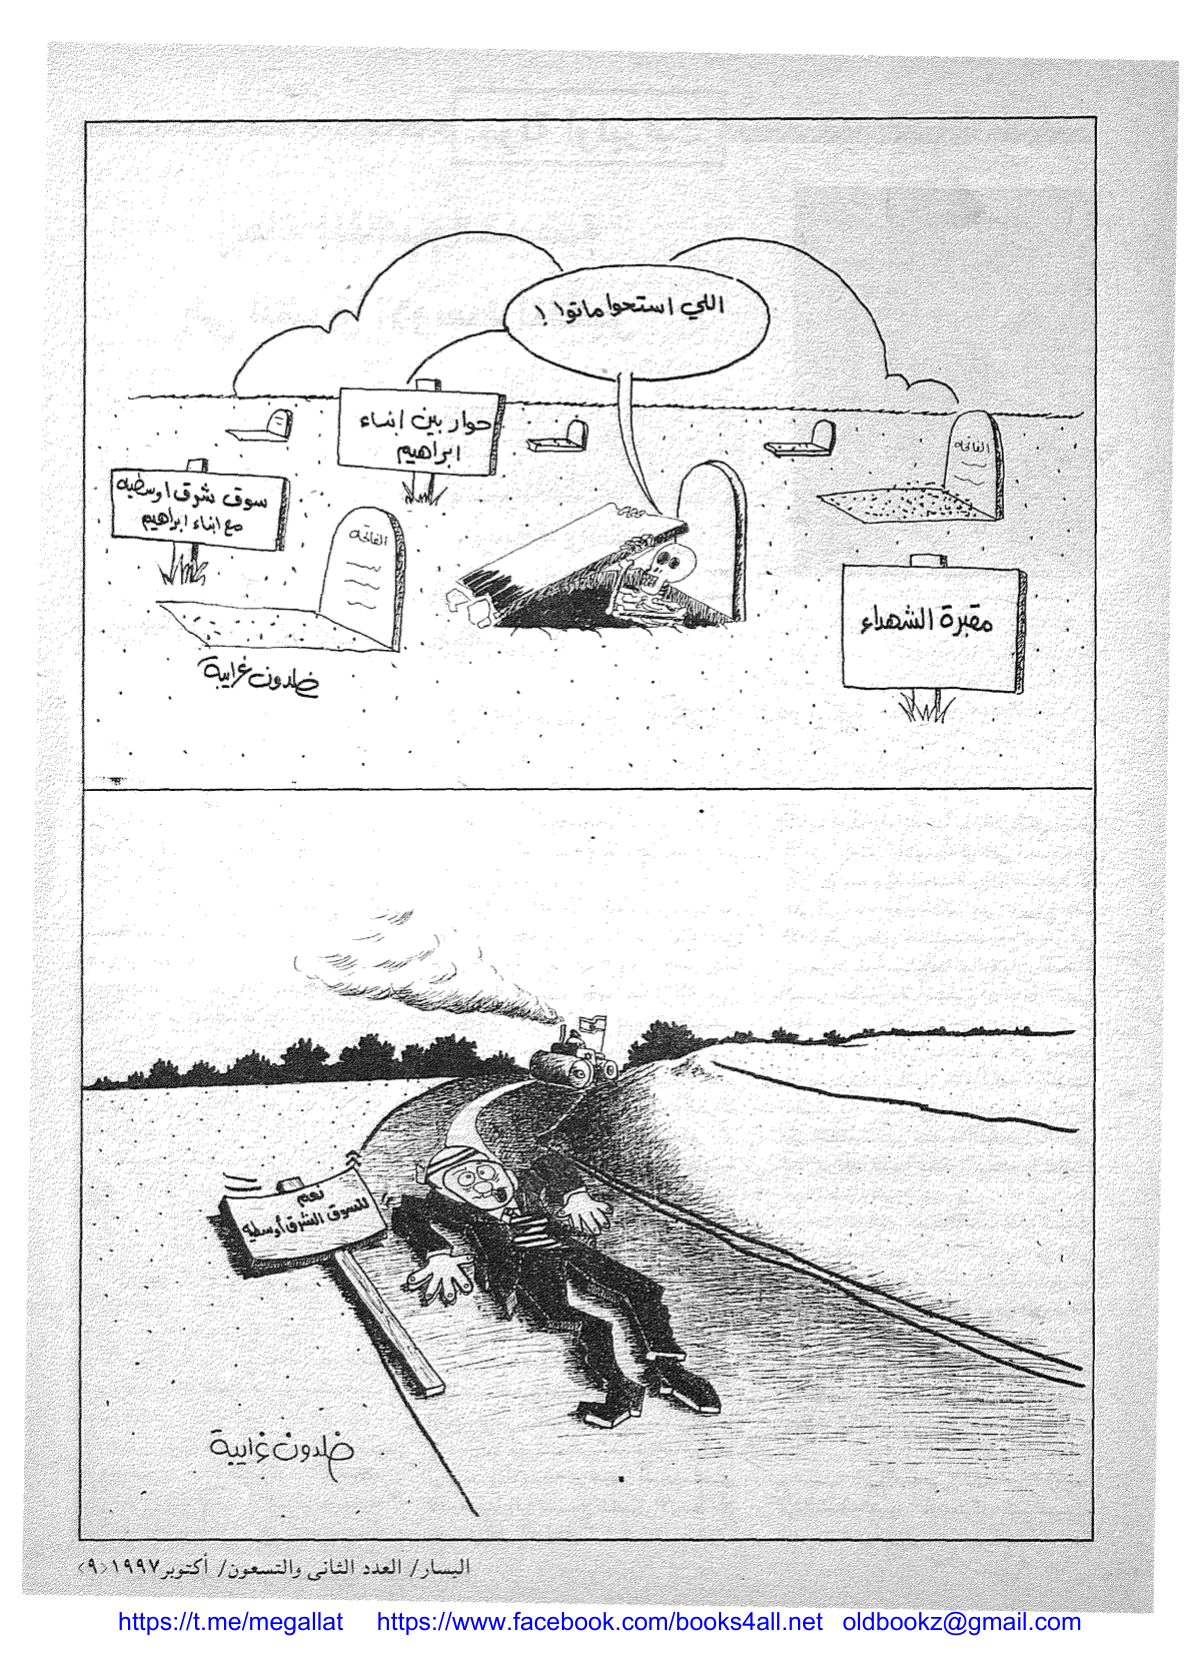 اللي استحوا ماتوا !
حوار بين ابناء
ابراهيم
سوق شرق اوسطيه
مع ابناء ابراهيم
الفاتحه
الفاتحه
مقبرة الشهداء
خلدون غرايبة
نعم
للسوق الشرق أوسطيه
خلدون غرايبة
اليسار/ العدد الثانى والتسعون/ أكتوبر ١٩٩٧<٩>
https://t.me/megallat https://www.facebook.com/books4all.net oldbookz@gmail.com